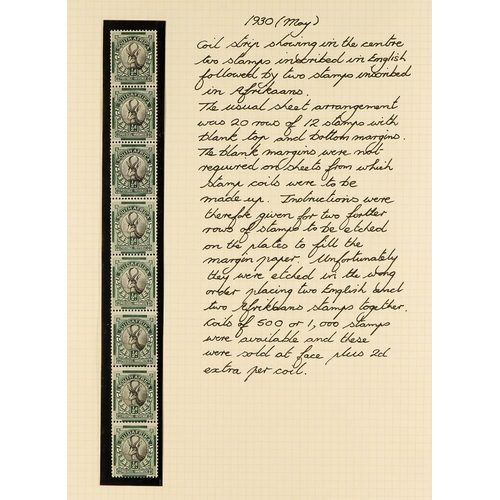 1930 (May)
Coil strip showing in the centre
two stamps inscribed in English
followed by two stamps inscribed
in Afrikaans.
The usual sheet arrangement
was 20 rows of 12 stamps with
blank top and bottom margins.
The blank margins were not
required on sheets from which
stamp coils were to be
made up. Instructions were
therefore given for two further
rows of stamps to be etched
on the plates to fill the
margin paper. Unfortunately
they were etched in the wrong
order placing two English and
two Afrikaans stamps together.
Coils of 500 or 1,000 stamps
were available and these
were sold at face plus 2d
extra per coil.